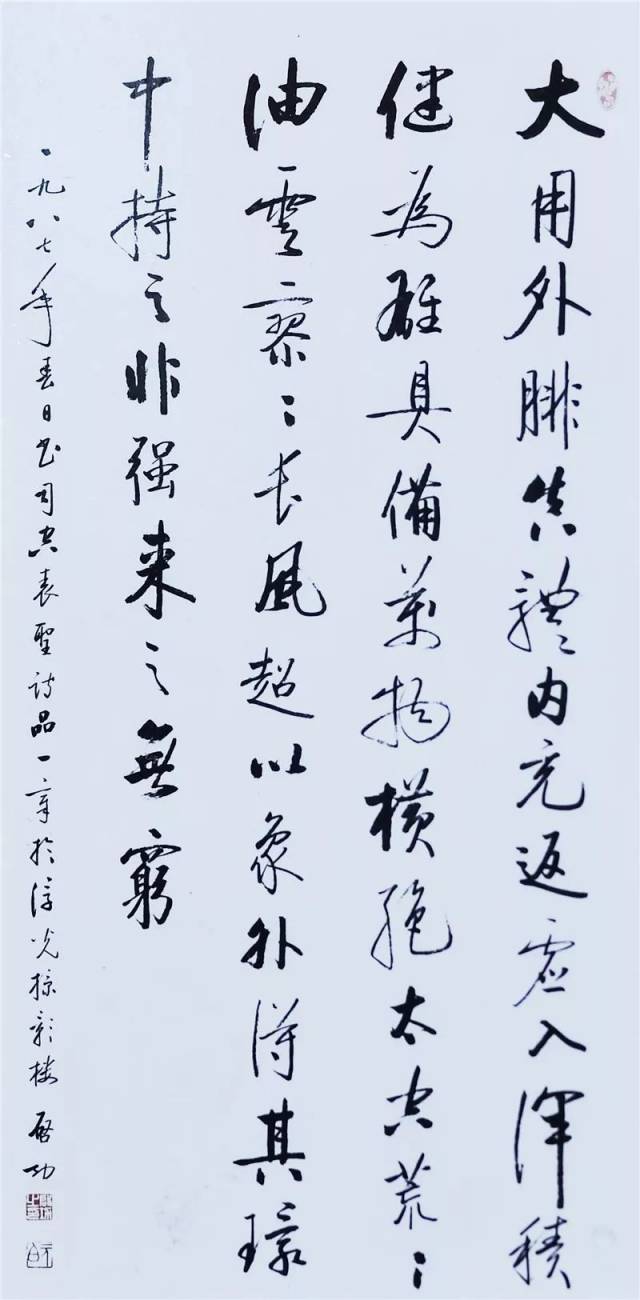 大用外腓真體内充返虛入渾積
健為雄具備萬物橫絶太空荒〻
油雲寥〻長風超以象外得其環
中持之非强来之無窮
一九八七年春日书司空表聖诗品一章於浮光掠影楼 啓功